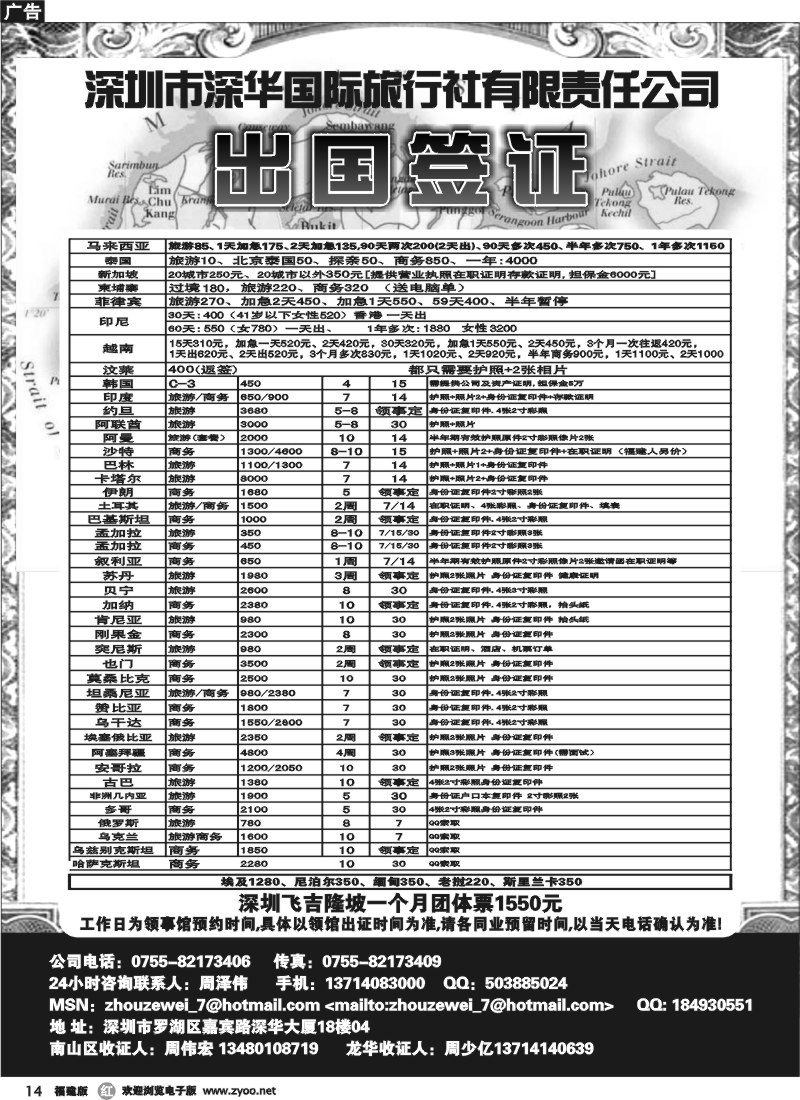 广告
深圳市深华国际旅行社有限责任公司
出国签证
马来西亚 旅游85、1天加急175、2天加急135,90天两次200(2天出)、90天多次450、半年多次750、1年多次1150
泰国 旅游10、北京泰国50、探亲50、商务850、一年:4000
新加坡 20城市250元、20城市以外350元[提供营业执照在职证明存款证明,担保金6000元]
柬埔寨 过境180,旅游220、商务320 (送电脑单)
菲律宾 旅游270、加急2天450、加急1天550、59天400、半年暂停
印尼 30天:400(41岁以下女性520)香港一天出
60天:550(女780)一天出、 1年多次:1880 女性3200
越南 15天310元,加急一天520元、2天420元,30天320元,加急1天550元、2天450元,3个月一次往返420元,
1天出620元、2天出520元,3个月多次830元,1天1020元、2天920元,半年商务900元,1天1100元、2天1000
汶莱 400(返签) 都只需要护照+2张相片
韩国 C-3 450 4 15 需提供公司及资产证明,担保金5万
印度 旅游/商务 650/900 7 14 护照+照片2+身份证复印件+存款证明
约旦 旅游 3680 5-8 领事定 身份证复印件、4张2寸彩照
阿联酋 旅游 3000 5-8 30 护照+照片
阿曼 旅游(套餐) 2000 10 14 半年期有效护照原件2寸彩照像片2张
沙特 商务 1300/4600 8-10 15 护照+照片2+身份证复印件+在职证明(福建人另价)
巴林 旅游 1100/1300 7 14 护照+照片1+身份证复印件
卡塔尔 旅游 8000 7 14 护照+照片2+身份证复印件
伊朗 商务 1680 5 领事定 身份证复印件2寸彩照2张
土耳其 旅游/商务 1500 2周 7/14 在职证明、4张彩照、身份证复印件、填表
巴基斯坦 商务 1000 2周 领事定 身份证复印件、4张2寸彩照
孟加拉 旅游 350 8-10 7/15/30 身份证复印件2寸彩照3张
孟加拉 商务 450 8-10 7/15/30 身份证复印件2寸彩照3张
叙利亚 商务 650 1周 7/14 半年期有效护照原件2寸彩照像片2张邀请函在职证明等
苏丹 旅游 1980 3周 领事定 护照2张照片 身份证复印件 健康证明
贝宁 旅游 2600 8 30 身份证复印件、4张3寸彩照
加纳 商务 2380 10 领事定 身份证复印件、4张2寸彩照,抬头纸
肯尼亚 旅游 980 10 30 护照2张照片 身份证复印件 抬头纸
刚果金 商务 2300 8 30 护照2张照片 身份证复印件
突尼斯 旅游 980 2周 领事定 在职证明、酒店、机票订单
也门 商务 3500 2周 领事定 护照2张照片 身份证复印件
莫桑比克 商务 2500 10 30 护照2张照片 身份证复印件
坦桑尼亚 旅游/商务 980/2380 7 30 身份证复印件、4张2寸彩照
赞比亚 商务 1800 7 30 身份证复印件、4张2寸彩照
乌干达 商务 1550/2800 7 30 身份证复印件、4张2寸彩照
埃塞俄比亚 旅游 2350 2周 领事定 护照2张照片 身份证复印件
阿塞拜疆 商务 4800 4周 30 护照3张照片 身份证复印件(需面试)
安哥拉 商务 1200/2050 10 30 护照2张照片 身份证复印件
古巴 旅游 1380 10 领事定 4张2寸彩照身份证复印件
非洲几内亚 旅游 1900 5 30 身份证户口本复印件 2寸彩照2张
多哥 商务 2100 5 30 4张2寸彩照身份证复印件
俄罗斯 旅游 780 8 7 QQ索取
乌克兰 旅游商务 1600 10 7 QQ索取
乌兹别克斯坦 商务 1850 10 领事定 QQ索取
哈萨克斯坦 商务 2280 10 30 QQ索取
埃及1280、尼泊尔350、缅甸350、老挝220、斯里兰卡350
深圳飞吉隆坡一个月团体票1550元
工作日为领事馆预约时间,具体以领馆出证时间为准,请各同业预留时间,以当天电话确认为准!
公司电话:0755-82173406 传真:0755-82173409
24小时咨询联系人:周泽伟 手机:13714083000 QQ:503885024
MSN:zhouzewei_7@hotmail.com <mailto:zhouzewei_7@hotmail.com> QQ: 184930551
地 址:深圳市罗湖区嘉宾路深华大厦18楼04
南山区收证人:周伟宏 13480108719 龙华收证人:周少亿13714140639
14 福建版 红 欢迎浏览电子版 www.zyoo.net